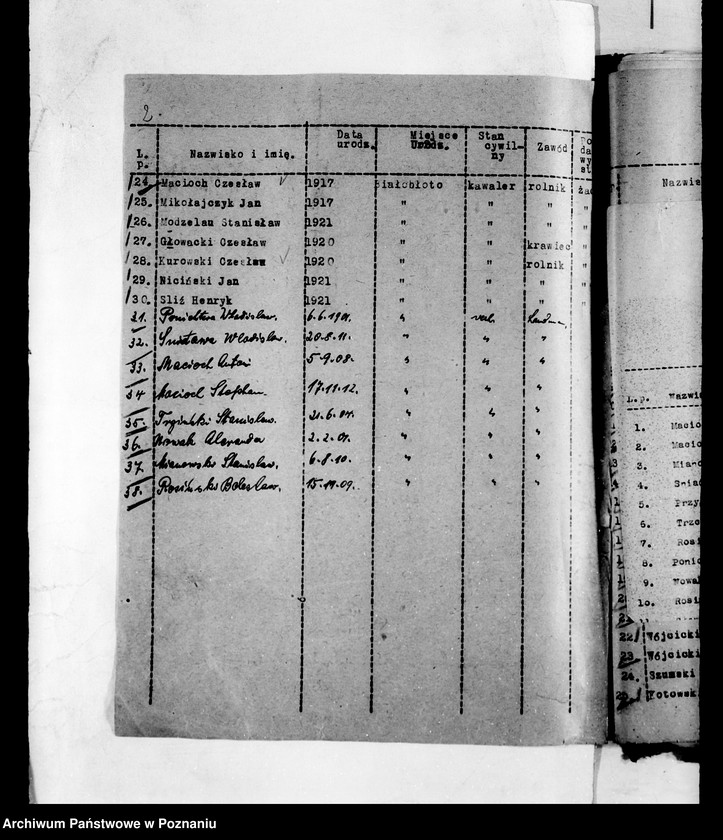 2.
L. p. Nazwisko i imię. Data urodz. Miejsce Urodz. Stan cywil- ny Zawód
24. Macioch Czesław 1917 Białobłoto kawaler rolnik
25. Mikołajczyk Jan 1917 " " "
26. Modzelan Stanisław 1921 " " "
27. Głowacki Czesław 1920 " " krawiec
28. Kurowski Czesław 1920 " " rolnik
29. Niciński Jan 1921 " " "
30. Sliż Henryk 1921 " " "
31. Władisław. 6.6.1901. " verh.
32. Władislav. 20.5.11. " " "
33. Macioch 5.9.08. " " "
34 Macioch Stephan. 17.11.12. " " "
35. Stanislaw. 21.6.04. " " "
36. Nowak 2.2.01. " " "
37. Stanislaw. 6.8.10. " " "
38. Boleslaw. " " "
Nazwis
L.p. Nazwis
1. Macio
2. Macio
3. Mian
4.
5. Przy
6. Trzc
7. Rosi
8. Poni
9. Nowa
10. Rosi
22/ Wójcicki
23 Wójcicki
24. Szumski
Kotowsk
Archiwum Państwowe w Poznaniu